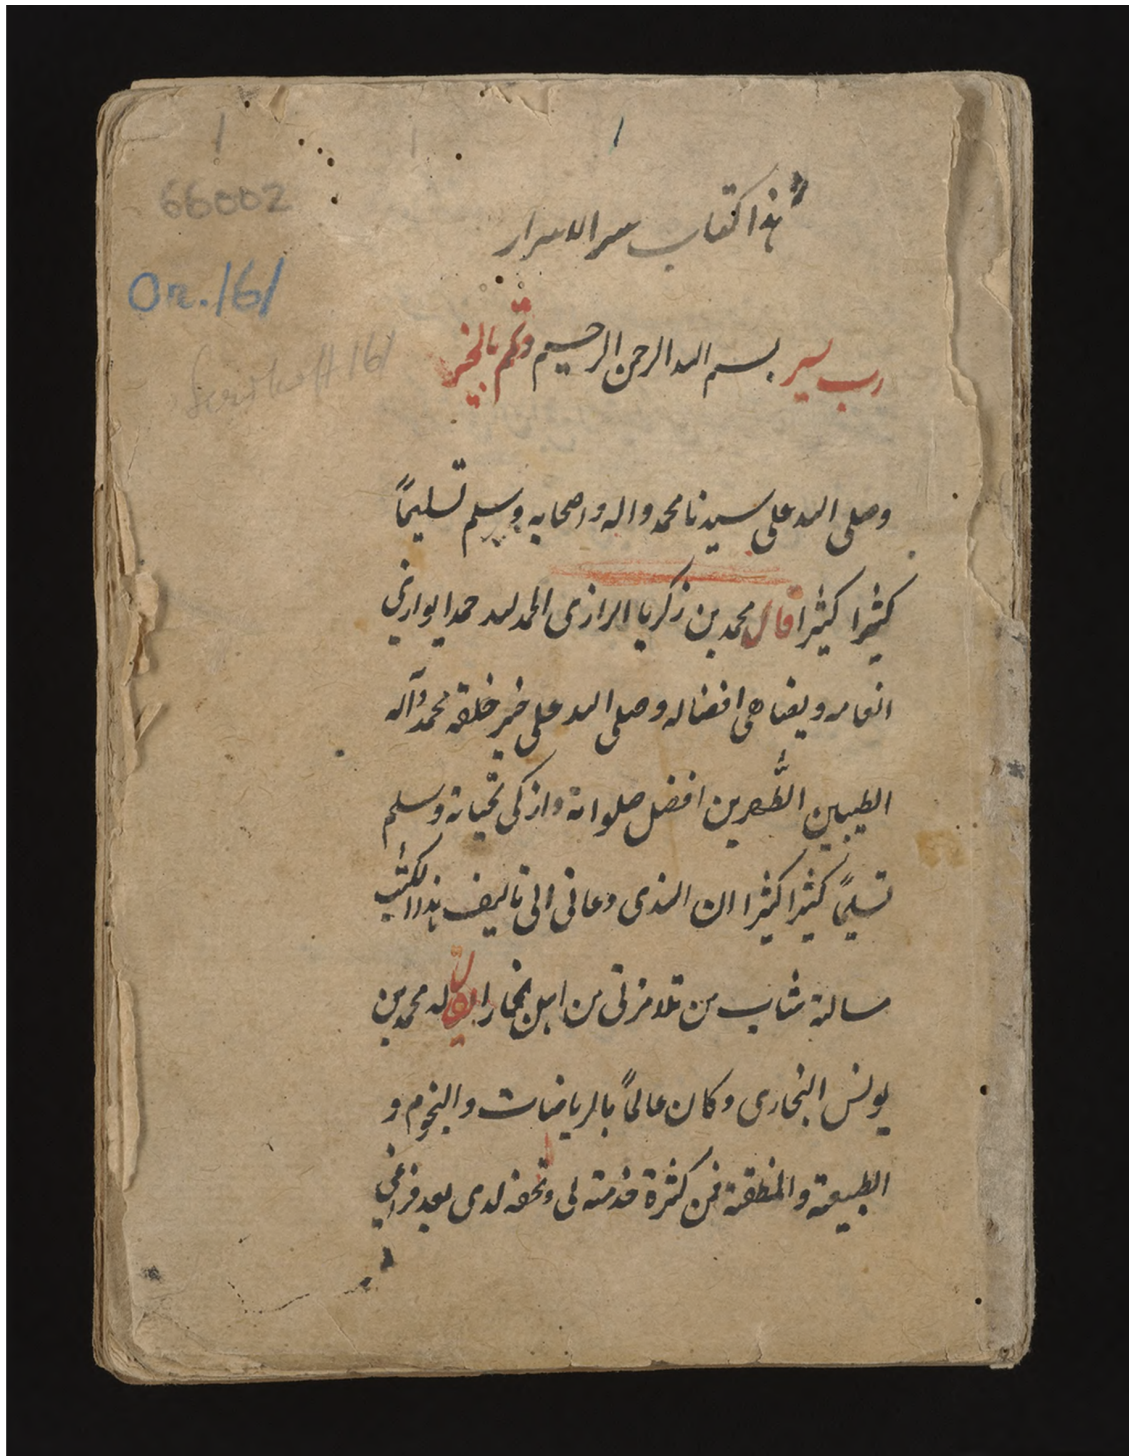 1
66002
هذا كتاب سر الاسرار
Or. 161
رب يسر بسم الله الرحمن الرحيم وتمم بالخير
وصلى الله على سيدنا محمد واله واصحابه وسلم تسليماً
كثيرا كثيرا قال محمد بن زكريا الرازى الحمد لله حمدا يوازي
انعامه ويضاهى افضاله وصلى الله على خير خلقه محمد وآله
الطيبين الطَّهرين افضل صلواته وازكى تحياته وسلم
تسليماً كثيرا كثيرا ان الذى دعانى الى تاليف هذا الكتب
مسالة شاب من تلامزتى من اهل بخارا يقال له محمد بن
يونس البخارى وكان عالماً بالرياضات والنجوم و
الطبيعة والمنطقة فمن كثرة خدمته لى وتحفه لدى بعد فراغي